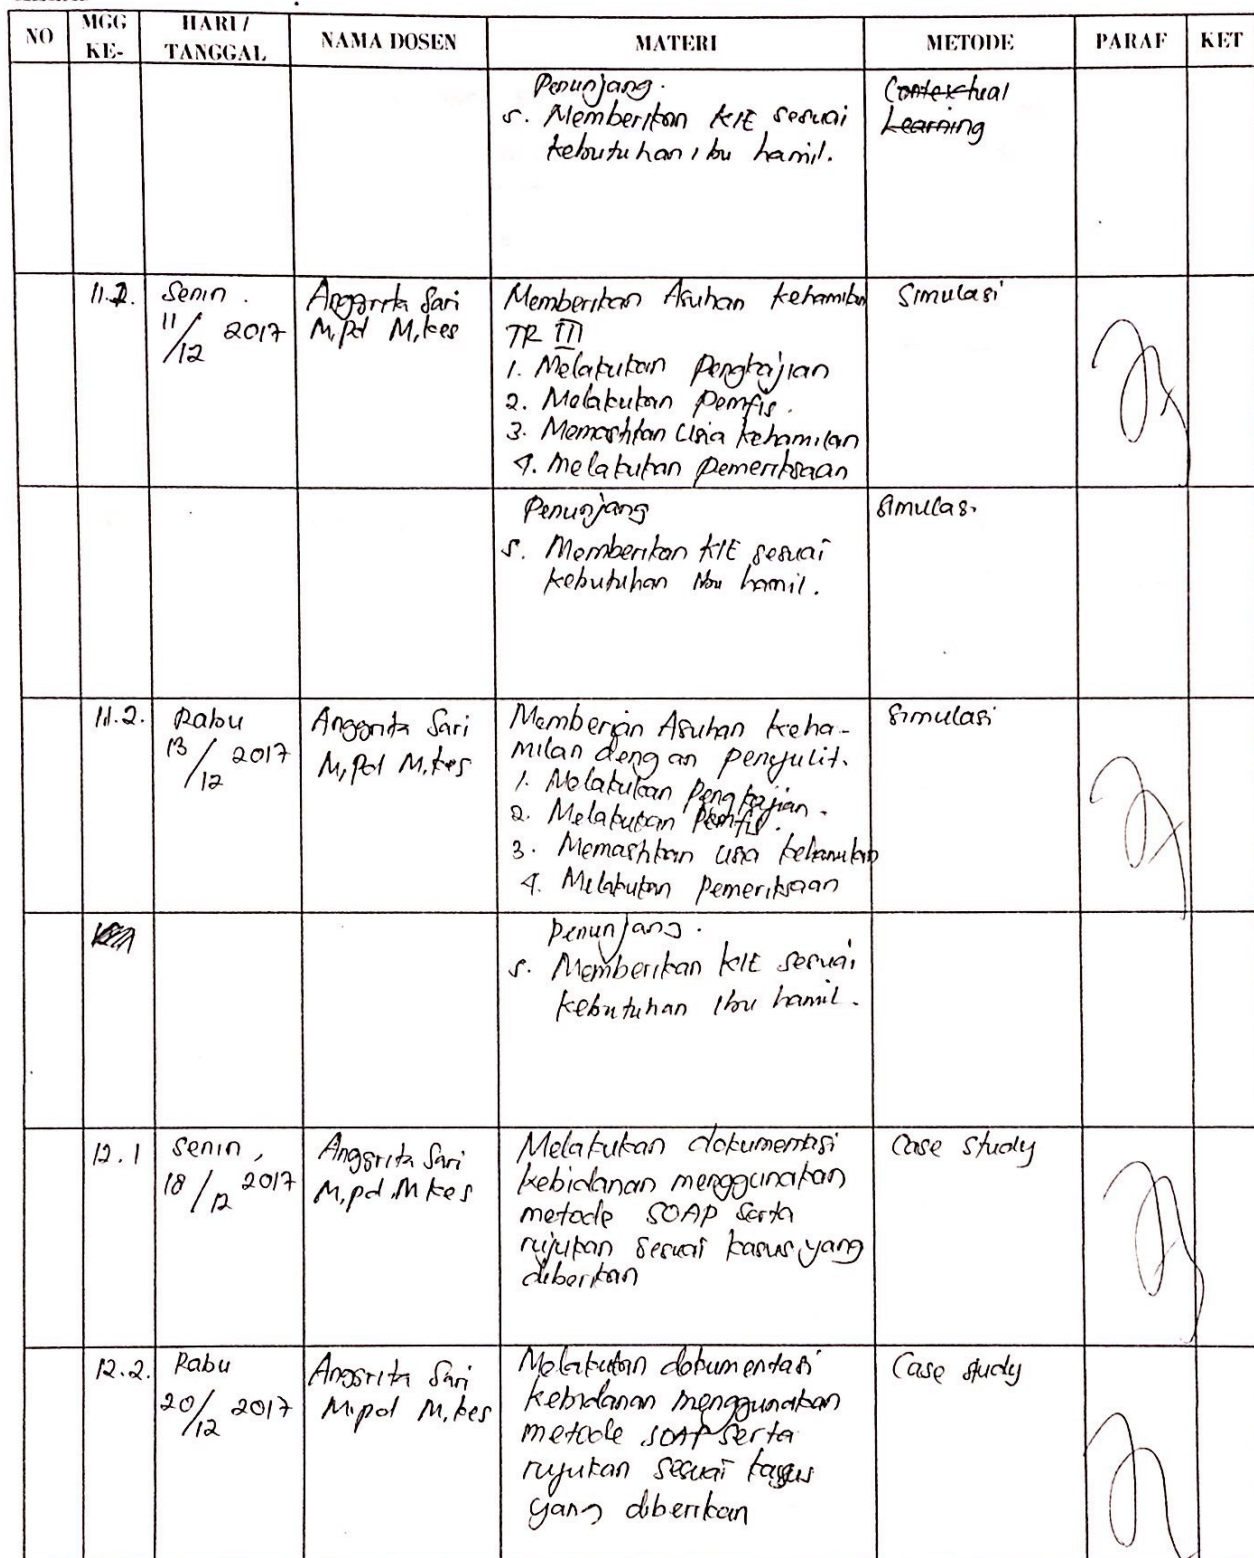 NO MGG KE- HARI / TANGGAL NAMA DOSEN MATERI METODE PARAF KET
Penunjang.
5. Memberikan KIE sesuai
kebutuhan ibu hamil.
Contextual
Learning
11.2. Senin.
11/12 2017
Anggrita Sari
M,Pd M,kes
Memberikan Asuhan kehamilan
TR III
1. Melakukan Pengkajian
2. Melakukan Pemfis.
3. Memastikan Usia kehamilan
4. Melakukan Pemeriksaan
Simulasi
Penunjang
5. Memberikan KIE sesuai
kebutuhan ibu hamil.
Simulasi
11.2. Rabu
13/12 2017
Anggrita Sari
M,Pd M.kes
Memberian Asuhan keha-
milan dengan penyulit.
1. Melakukan Pengkajian.
2. Melakukan Pemfis.
3. Memastikan usia kehamilan
4. Melakukan Pemeriksaan
Simulasi
Penunjang.
5. Memberikan KIE sesuai
kebutuhan ibu hamil.
12.1 Senin,
18/12 2017
Anggrita Sari
M,pd.M kes
Melakukan dokumentasi
kebidanan menggunakan
metode SOAP serta
rujukan sesuai kasus yang
diberikan
Case study
12.2. Rabu
20/12 2017
Anggrita Sari
M.pd M,kes
Melakukan dokumentasi
kebidanan menggunakan
metode SOAP serta
rujukan sesuai kasus
yang diberikan
Case study